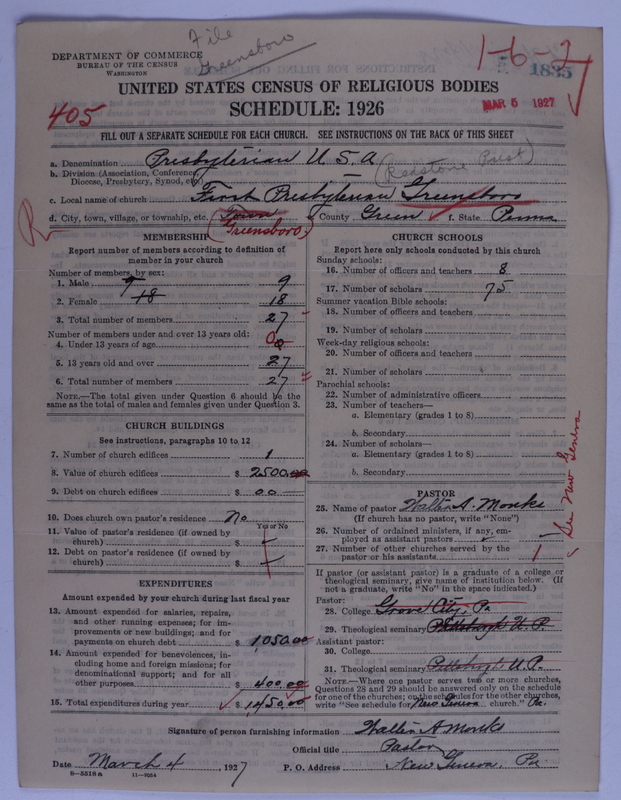 File
Greensboro
DEPARTMENT OF COMMERCE
BUREAU OF THE CENSUS
WASHINGTON
1-6-2
1835
MAR 5 1927
UNITED STATES CENSUS OF RELIGIOUS BODIES
SCHEDULE: 1926
405
FILL OUT A SEPARATE SCHEDULE FOR EACH CHURCH. SEE INSTRUCTIONS ON THE BACK OF THIS SHEET
a. Denomination Presbyterian U S A
b. Division (Association, Conference, Diocese, Presbytery, Synod, etc.) — (Redstone Presb)
c. Local name of church First Presbyterian Greensboro
d. City, town, village, or township, etc. Town (Greensboro) County Green f. State Penna
R
MEMBERSHIP
Report number of members according to definition of
member in your church
Number of members, by sex:
1. Male 9 9
2. Female 18 18
3. Total number of members 27
Number of members under and over 13 years old:
4. Under 13 years of age 0
5. 13 years old and over 27
6. Total number of members 27
NOTE.—The total given under Question 6 should be
same as the total of males and females given under Question 3.
CHURCH BUILDINGS
See instructions, paragraphs 10 to 12
7. Number of church edifices 1
8. Value of church edifices $ 2500.00
9. Debt on church edifices $ 00
10. Does church own pastor's residence No
Yes or No
11. Value of pastor's residence (if owned by
church) $
12. Debt on pastor's residence (if owned by
church) $
EXPENDITURES
Amount expended by your church during last fiscal year
13. Amount expended for salaries, repairs,
and other running expenses; for im-
provements or new buildings; and for
payments on church debt $ 1050.00
14. Amount expended for benevolences, in-
cluding home and foreign missions; for
denominational support; and for all
other purposes $ 400.00
15. Total expenditures during year $ 1450.00
CHURCH SCHOOLS
Report here only schools conducted by this church
Sunday schools:
16. Number of officers and teachers 8
17. Number of scholars 75
Summer vacation Bible schools:
18. Number of officers and teachers
19. Number of scholars
Week-day religious schools:
20. Number of officers and teachers
21. Number of scholars
Parochial schools:
22. Number of administrative officers
23. Number of teachers—
a. Elementary (grades 1 to 8)
b. Secondary
24. Number of scholars—
a. Elementary (grades 1 to 8)
b. Secondary
See New Geneva
PASTOR
25. Name of pastor Walter A. Monks
(If church has no pastor, write "None")
26. Number of ordained ministers, if any, em-
ployed as assistant pastors —
27. Number of other churches served by the
pastor or his assistants 1
If pastor (or assistant pastor) is a graduate of a college or
theological seminary, give name of institution below. (If
not a graduate, write "No" in the space indicated.)
Pastor:
28. College Grove City, Pa
29. Theological seminary Pittsburgh U. P.
Assistant pastor:
30. College
31. Theological seminary Pittsburgh U. P.
NOTE.—Where one pastor serves two or more churches,
Questions 28 and 29 should be answered only on the schedule
for one of the churches; on the schedules for the other churches,
write "See schedule for New Geneva church." Pa.
Signature of person furnishing information Walter A Monks
Official title Pastor
Date March 4, 1927 P. O. Address New Geneva, Pa.
8—5518a 11—9264